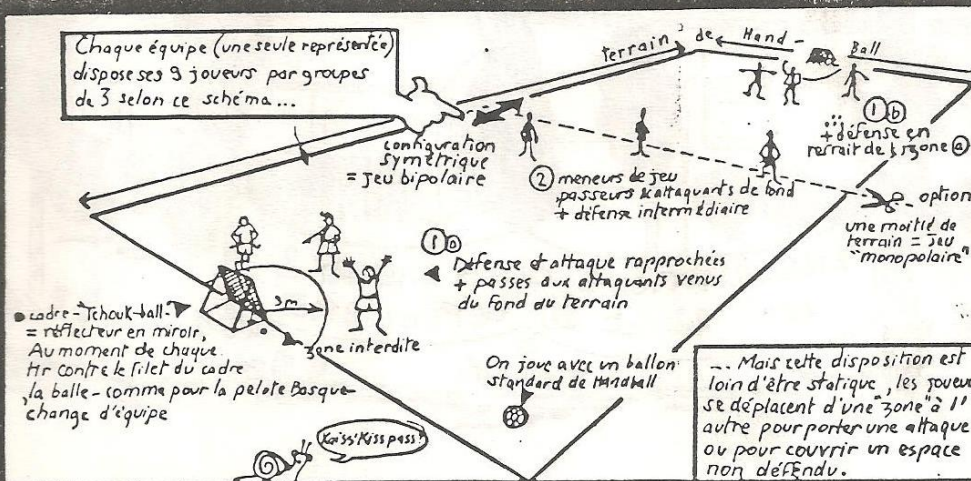 Chaque équipe (une seule représentée)
dispose ses 9 joueurs par groupes
de 3 selon ce schéma...
terrain de Hand-Ball
configuration
symétrique
= jeu bipolaire
② meneurs de jeu
passeurs & attaquants de fond
+ défense intermédiaire
①ⓑ
+ défense en
retrait de la zone ⓐ
option
une moitié de
terrain = jeu
"monopolaire"
①ⓐ
Défense et attaque rapprochées
+ passes aux attaquants venus
du fond du terrain
3m
zone interdite
cadre-Tchouk-ball-
= réflecteur en miroir,
Au moment de chaque
tir contre le filet du cadre
la balle - comme pour la pelote Basque -
change d'équipe
On joue avec un ballon
standard de Handball
Kiss' Kiss pass?
... Mais cette disposition est
loin d'être statique, les joueu
se déplacent d'une "zone" à l'
autre pour porter une attaque
ou pour couvrir un espace
non défendu.